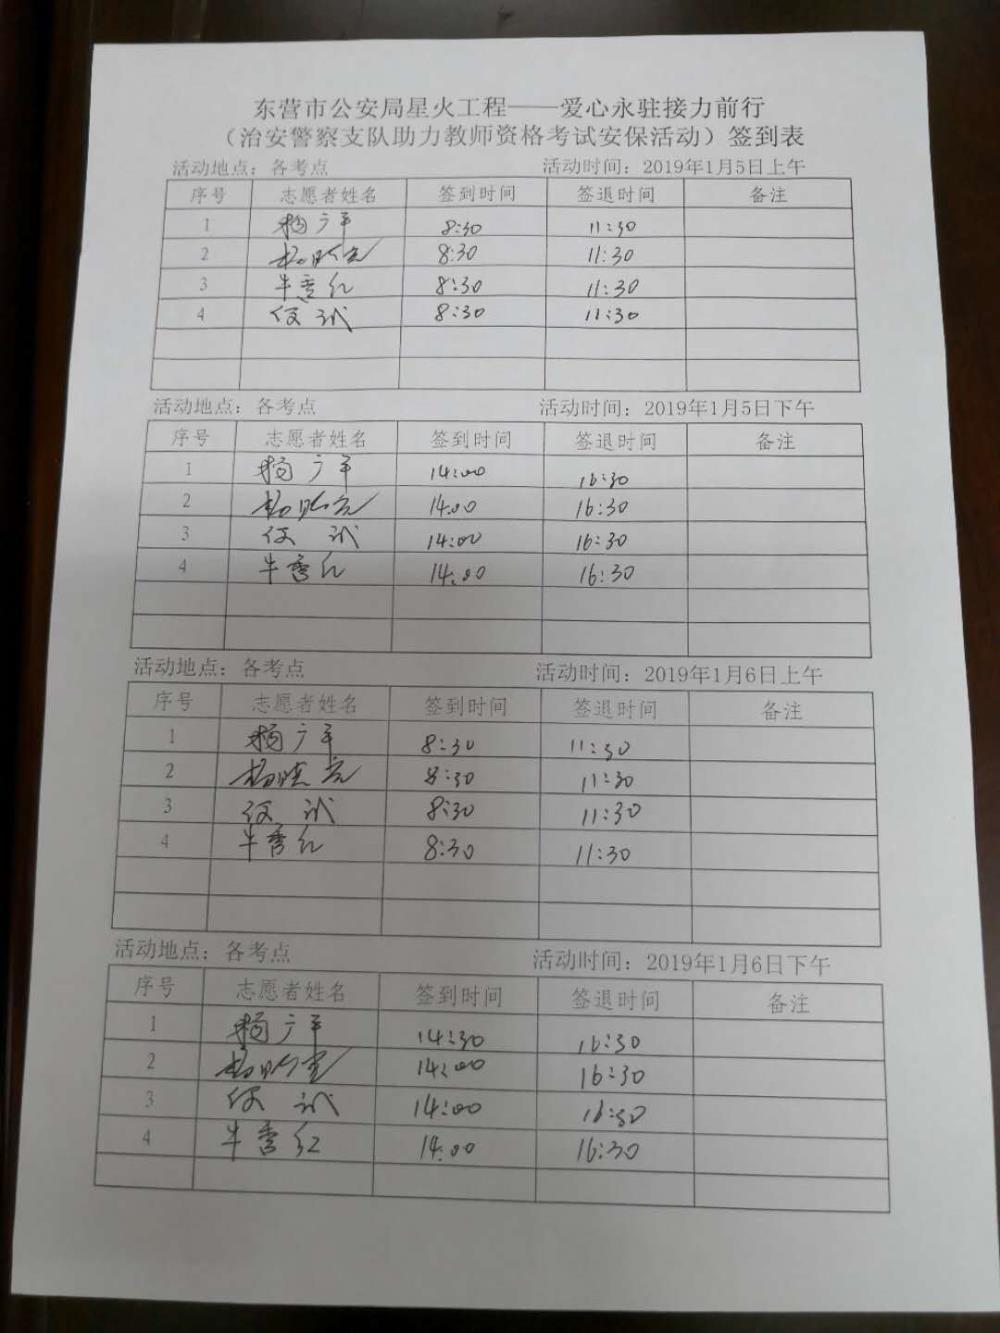 东营市公安局星火工程——爱心永驻接力前行
（治安警察支队助力教师资格考试安保活动）签到表
活动地点：各考点 活动时间：2019年1月5日上午
序号 志愿者姓名 签到时间 签退时间 备注
1 杨广平 8:30 11:30
2 杨 8:30 11:30
3 牛秀红 8:30 11:30
4 8:30 11:30
活动地点：各考点 活动时间：2019年1月5日下午
序号 志愿者姓名 签到时间 签退时间 备注
1 杨广平 14:00 16:30
2 杨 14:00 16:30
3 14:00 16:30
4 牛秀红 14:00 16:30
活动地点：各考点 活动时间：2019年1月6日上午
序号 志愿者姓名 签到时间 签退时间 备注
1 杨广平 8:30 11:30
2 杨晓亮 8:30 11:30
3 8:30 11:30
4 牛秀红 8:30 11:30
活动地点：各考点 活动时间：2019年1月6日下午
序号 志愿者姓名 签到时间 签退时间 备注
1 杨广平 14:30 16:30
2 杨 14:00 16:30
3 14:00 16:30
4 牛秀红 14:00 16:30